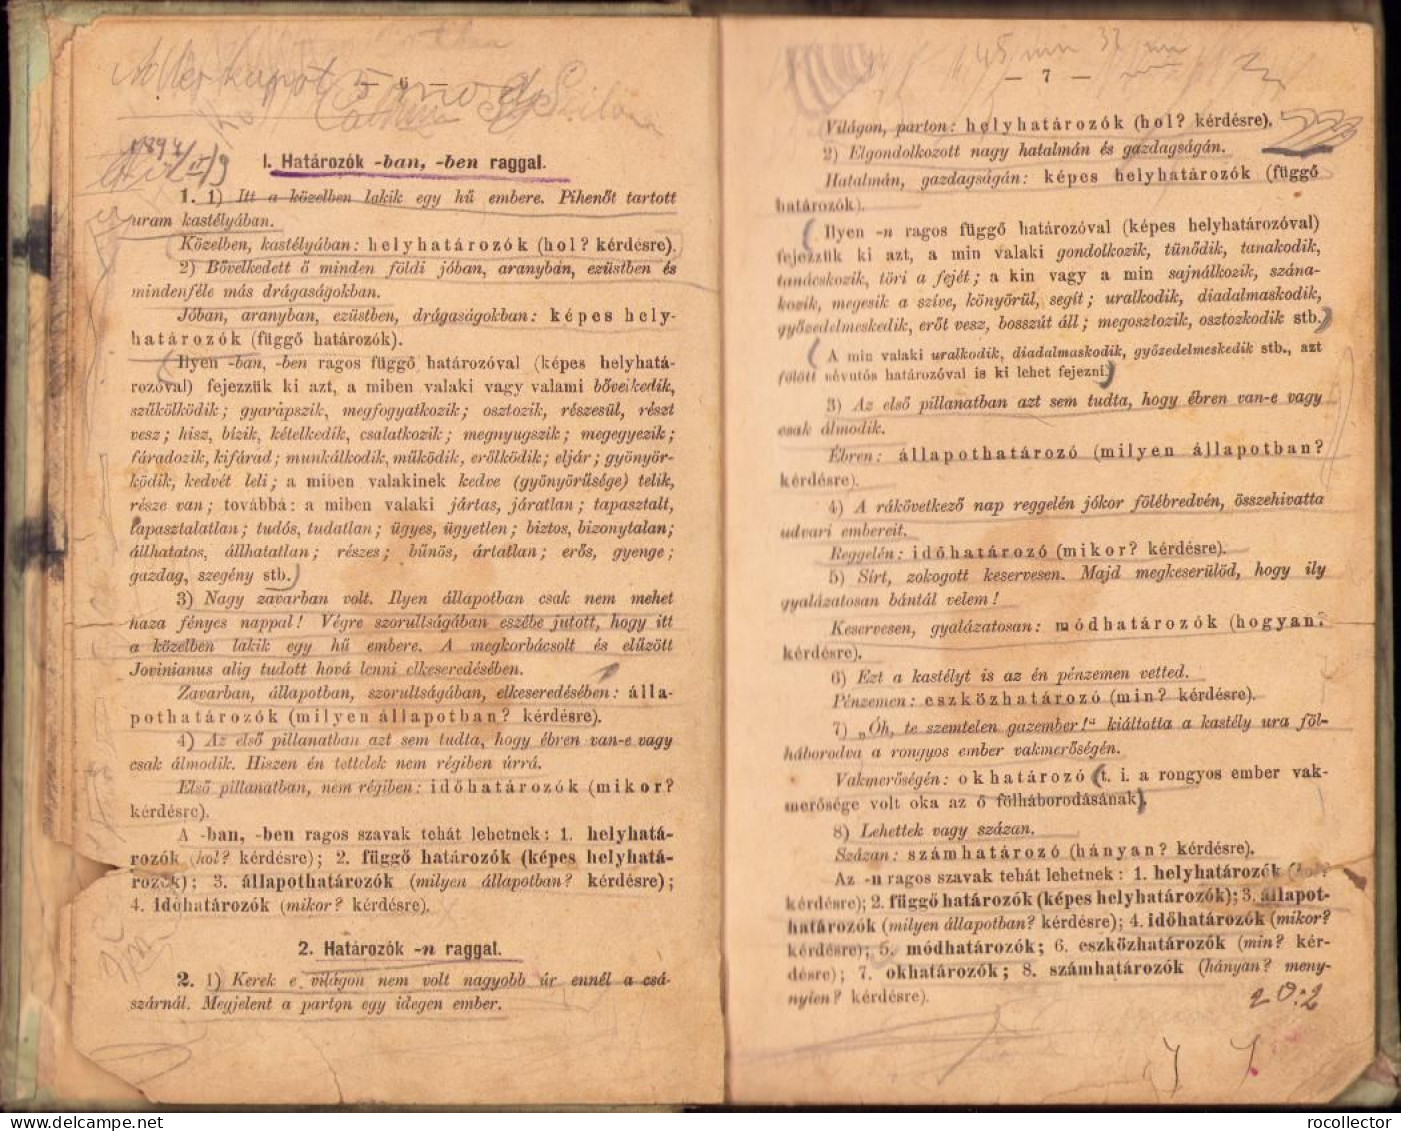 — 6 —
I. Határozók -ban, -ben raggal.
1. 1) Itt a közelben lakik egy hű embere. Pihenőt tartott
uram kastélyában.
Közelben, kastélyában: helyhatározók (hol? kérdésre).
2) Bővelkedett ő minden földi jóban, aranyban, ezüstben és
mindenféle más drágaságokban.
Jóban, aranyban, ezüstben, drágaságokban: képes hely-
határozók (függő határozók).
Ilyen -ban, -ben ragos függő határozóval (képes helyhatá-
rozóval) fejezzük ki azt, a miben valaki vagy valami bővelkedik,
szűkölködik; gyarapszik, megfogyatkozik; osztozik, részesül, részt
vesz; hisz, bízik, kételkedik, csalatkozik; megnyugszik; megegyezik;
fáradozik, kifárad; munkálkodik, működik, erőlködik; eljár; gyönyör-
ködik, kedvét leli; a miben valakinek kedve (gyönyörűsége) telik,
része van; továbbá: a miben valaki jártas, járatlan; tapasztalt,
tapasztalatlan; tudós, tudatlan; ügyes, ügyetlen; biztos, bizonytalan;
állhatatos, állhatatlan; részes; bűnös, ártatlan; erős, gyenge;
gazdag, szegény stb.
3) Nagy zavarban volt. Ilyen állapotban csak nem mehet
haza fényes nappal! Végre szorultságában eszébe jutott, hogy itt
a közelben lakik egy hű embere. A megkorbácsolt és elűzött
Jovinianus alig tudott hová lenni elkeseredésében.
Zavarban, állapotban, szorultságában, elkeseredésében: álla-
pothatározók (milyen állapotban? kérdésre).
4) Az első pillanatban azt sem tudta, hogy ébren van-e vagy
csak álmodik. Hiszen én tettelek nem régiben úrrá.
Első pillanatban, nem régiben: időhatározók (mikor?
kérdésre).
A -ban, -ben ragos szavak tehát lehetnek: 1. helyhatá-
rozók (hol? kérdésre); 2. függő határozók (képes helyhatá-
rozók); 3. állapothatározók (milyen állapotban? kérdésre);
4. időhatározók (mikor? kérdésre).
2. Határozók -n raggal.
2. 1) Kerek e világon nem volt nagyobb úr ennél a csá-
szárnál. Megjelent a parton egy idegen ember.
— 7 —
Világon, parton: helyhatározók (hol? kérdésre).
2) Elgondolkozott nagy hatalmán és gazdagságán.
Hatalmán, gazdagságán: képes helyhatározók (függő
határozók).
Ilyen -n ragos függő határozóval (képes helyhatározóval)
fejezzük ki azt, a min valaki gondolkozik, tünődik, tanakodik,
tanácskozik, töri a fejét; a kin vagy a min sajnálkozik, szána-
kozik, megesik a szíve, könyörül, segít; uralkodik, diadalmaskodik,
győzedelmeskedik, erőt vesz, bosszút áll; megosztozik, osztozkodik stb.
A min valaki uralkodik, diadalmaskodik, győzedelmeskedik stb., azt
fölött névutós határozóval is ki lehet fejezni.
3) Az első pillanatban azt sem tudta, hogy ébren van-e vagy
csak álmodik.
Ébren: állapothatározó (milyen állapotban?
kérdésre).
4) A rákövetkező nap reggelén jókor fölébredvén, összehivatta
udvari embereit.
Reggelén: időhatározó (mikor? kérdésre).
5) Sírt, zokogott keservesen. Majd megkeserülöd, hogy ily
gyalázatosan bántál velem!
Keservesen, gyalázatosan: módhatározók (hogyan?
kérdésre).
6) Ezt a kastélyt is az én pénzemen vetted.
Pénzemen: eszközhatározó (min? kérdésre).
7) „Óh, te szemtelen gazember!“ kiáltotta a kastély ura föl-
háborodva a rongyos ember vakmerőségén.
Vakmerőségén: okhatározó (t. i. a rongyos ember vak-
merősége volt oka az ő fölháborodásának).
8) Lehettek vagy százan.
Százan: számhatározó (hányan? kérdésre).
Az -n ragos szavak tehát lehetnek: 1. helyhatározók (hol?
kérdésre); 2. függő határozók (képes helyhatározók); 3. állapot-
határozók (milyen állapotban? kérdésre); 4. időhatározók (mikor?
kérdésre); 5. módhatározók; 6. eszközhatározók (min? kér-
désre); 7. okhatározók; 8. számhatározók (hányan? meny-
nyien? kérdésre).
20:2
delcampe.net
rocollector